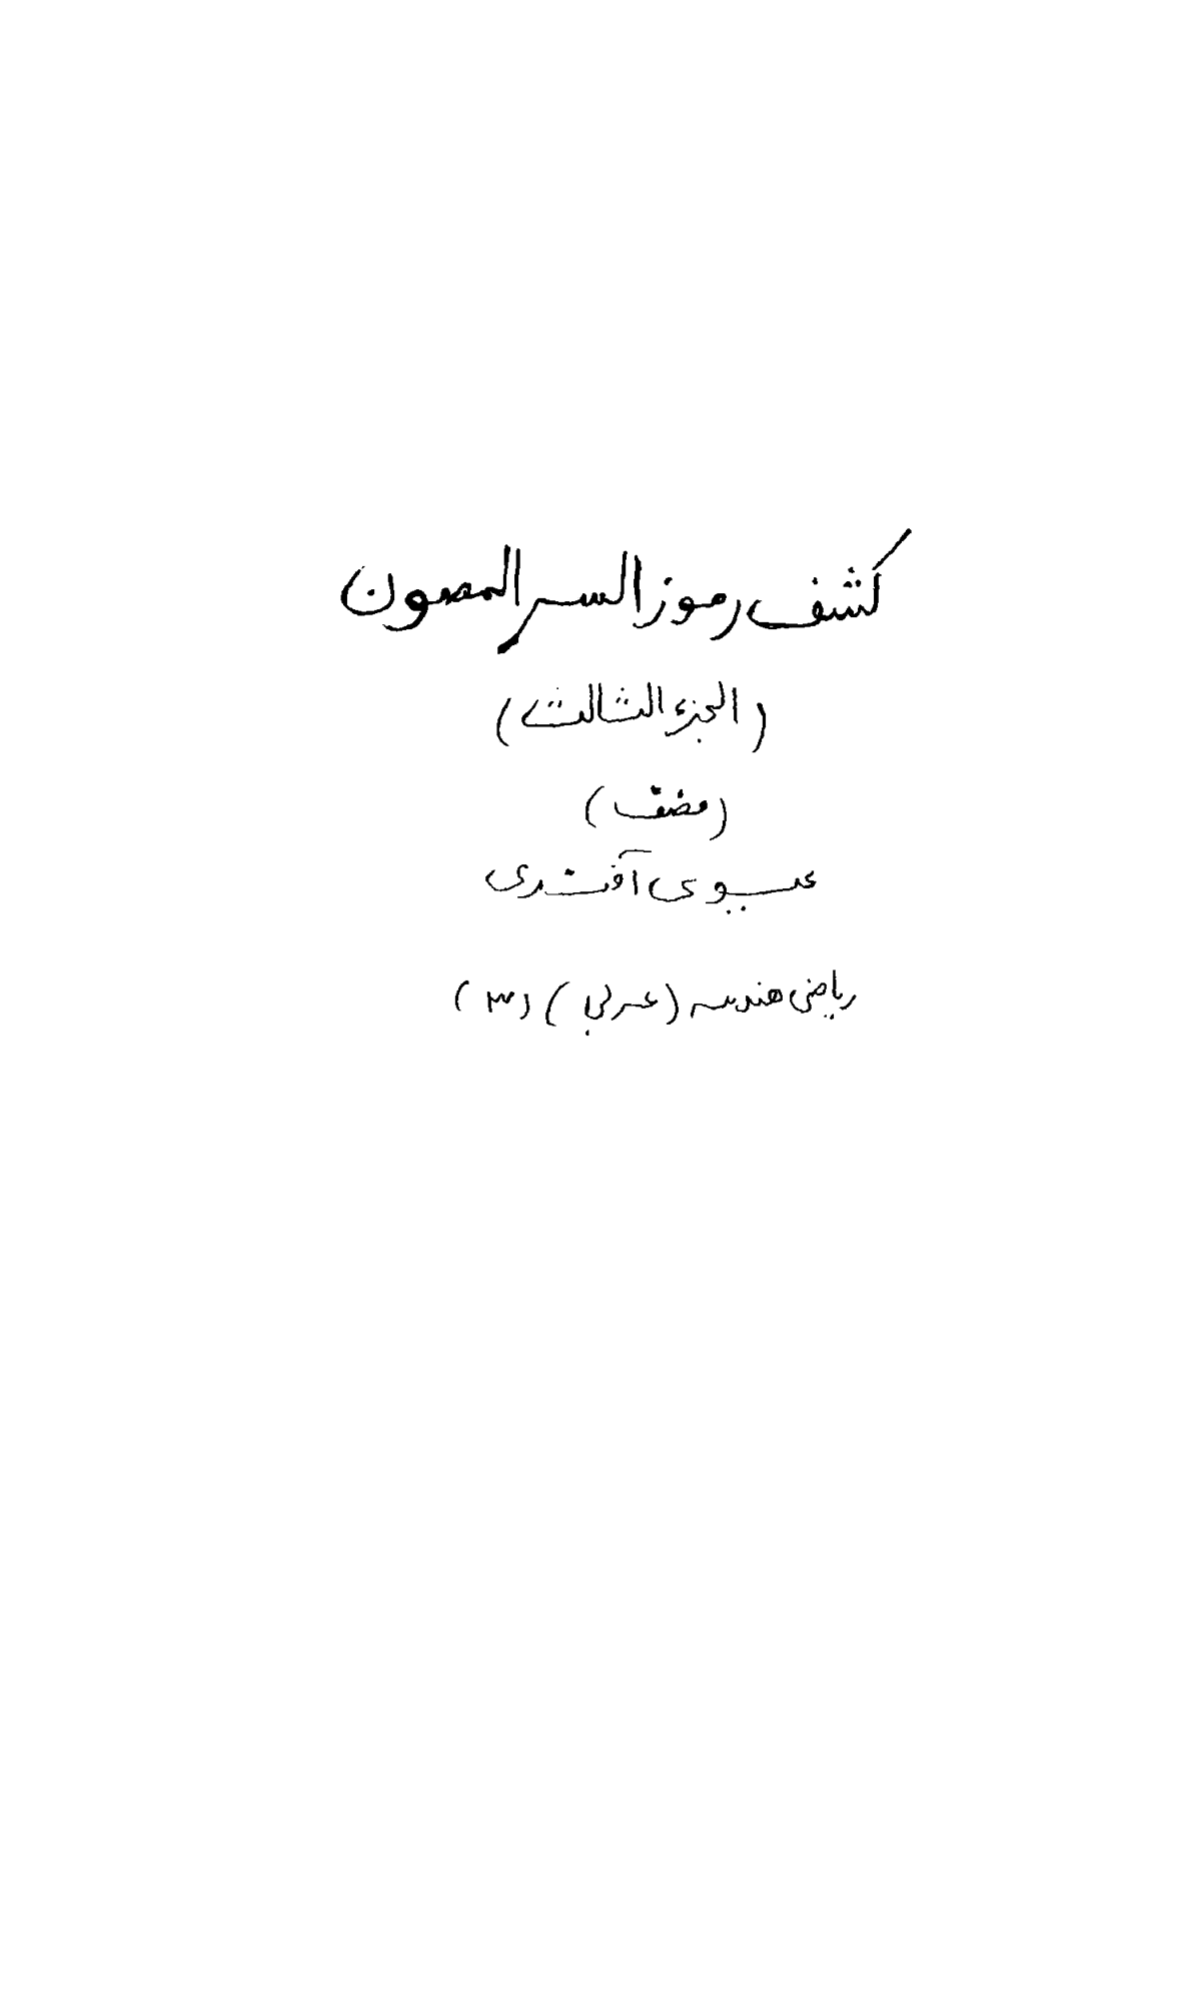 كشف رموز السر المصون
(الجزء الثالث)
(مضف)
عيسوى آفندى
رياضى هندسه (عربي) (٣)